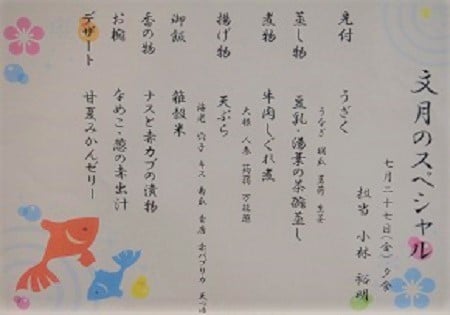 文月のスペシャル
七月二十七日(金)夕食
担当 小林 裕明
先付 うざく
うなぎ 胡瓜 茗荷 生姜
蒸し物 豆乳・湯葉の茶碗蒸し
煮物 牛肉しぐれ煮
大根 人参 蒟蒻 万能葱
揚げ物 天ぷら
海老 穴子 キス 南瓜 赤パプリカ 天つゆ
御飯 雑穀米
香の物 ナスと赤カブの漬物
お椀 なめこ・葱の赤出汁
デザート 甘夏みかんゼリー